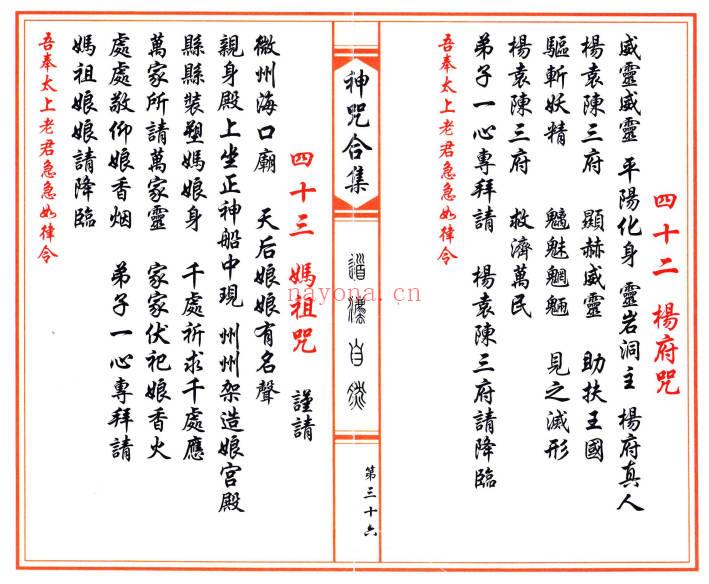 四十二 楊府咒
威靈威靈 平陽化身 靈岩洞主 楊府真人
楊袁陳三府 顯赫威靈 助扶王國
驅斬妖精 魑魅魍魎 見之滅形
楊袁陳三府 救濟萬民
弟子一心專拜請 楊袁陳三府請降臨
吾奉太上老君急急如律令
神咒合集
道法自然
第三十六
四十三 媽祖咒 謹請
微州海口廟 天后娘娘有名聲
親身殿上坐正神船中現 州州架造娘宮殿
縣縣裝塑媽娘身 千處祈求千處應
萬家所請萬家靈 家家伏祀娘香火
處處敬仰娘香烟 弟子一心專拜請
媽祖娘娘請降臨
吾奉太上老君急急如律令
nayona.cn